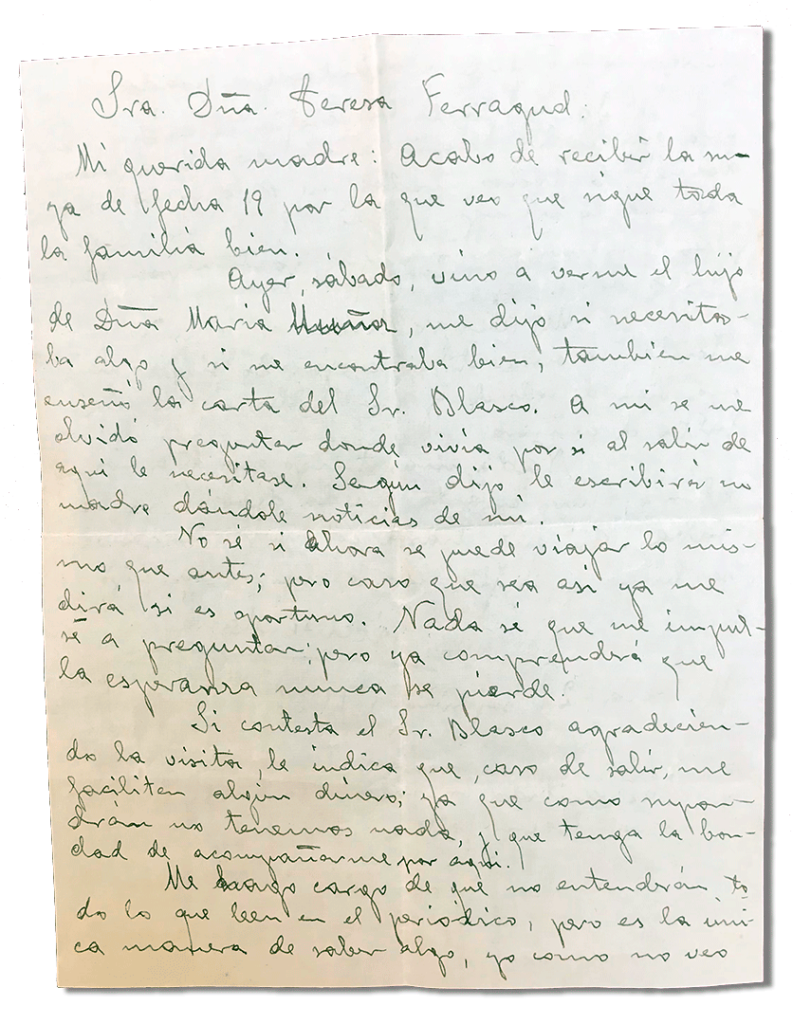 Sra. Dña. Teresa Ferragud:
Mi querida madre: Acabo de recibir la su-
ya de fecha 19 por la que veo que sigue toda
la familia bien.
Ayer, sábado, vino a verme el hijo
de Dña Maria, me dijo si necesita-
ba algo y si me encontraba bien, también me
enseñó la carta del Sr. Blasco. A mi se me
olvidó preguntar donde vivía por si al salir de
aqui le necesitase. Según dijo le escribirá su
madre dándole noticias de mi.
No sé si ahora se puede viajar lo mis-
mo que antes; pero caso que sea asi ya me
dirá si es oportuno. Nada sé que me impul-
sé a preguntar; pero ya comprenderá que
la esperanza nunca se pierde.
Si contesta el Sr. Blasco agradecien-
do la visita, le indica que, caso de salir, me
faciliten algún dinero; ya que como supon-
drán no tenemos nada, y que tenga la bon-
dad de acompañarme por aqui.
Me hago cargo de que no entenderán to-
do lo que leen en el periódico, pero es la úni-
ca manera de saber algo, yo como no veo